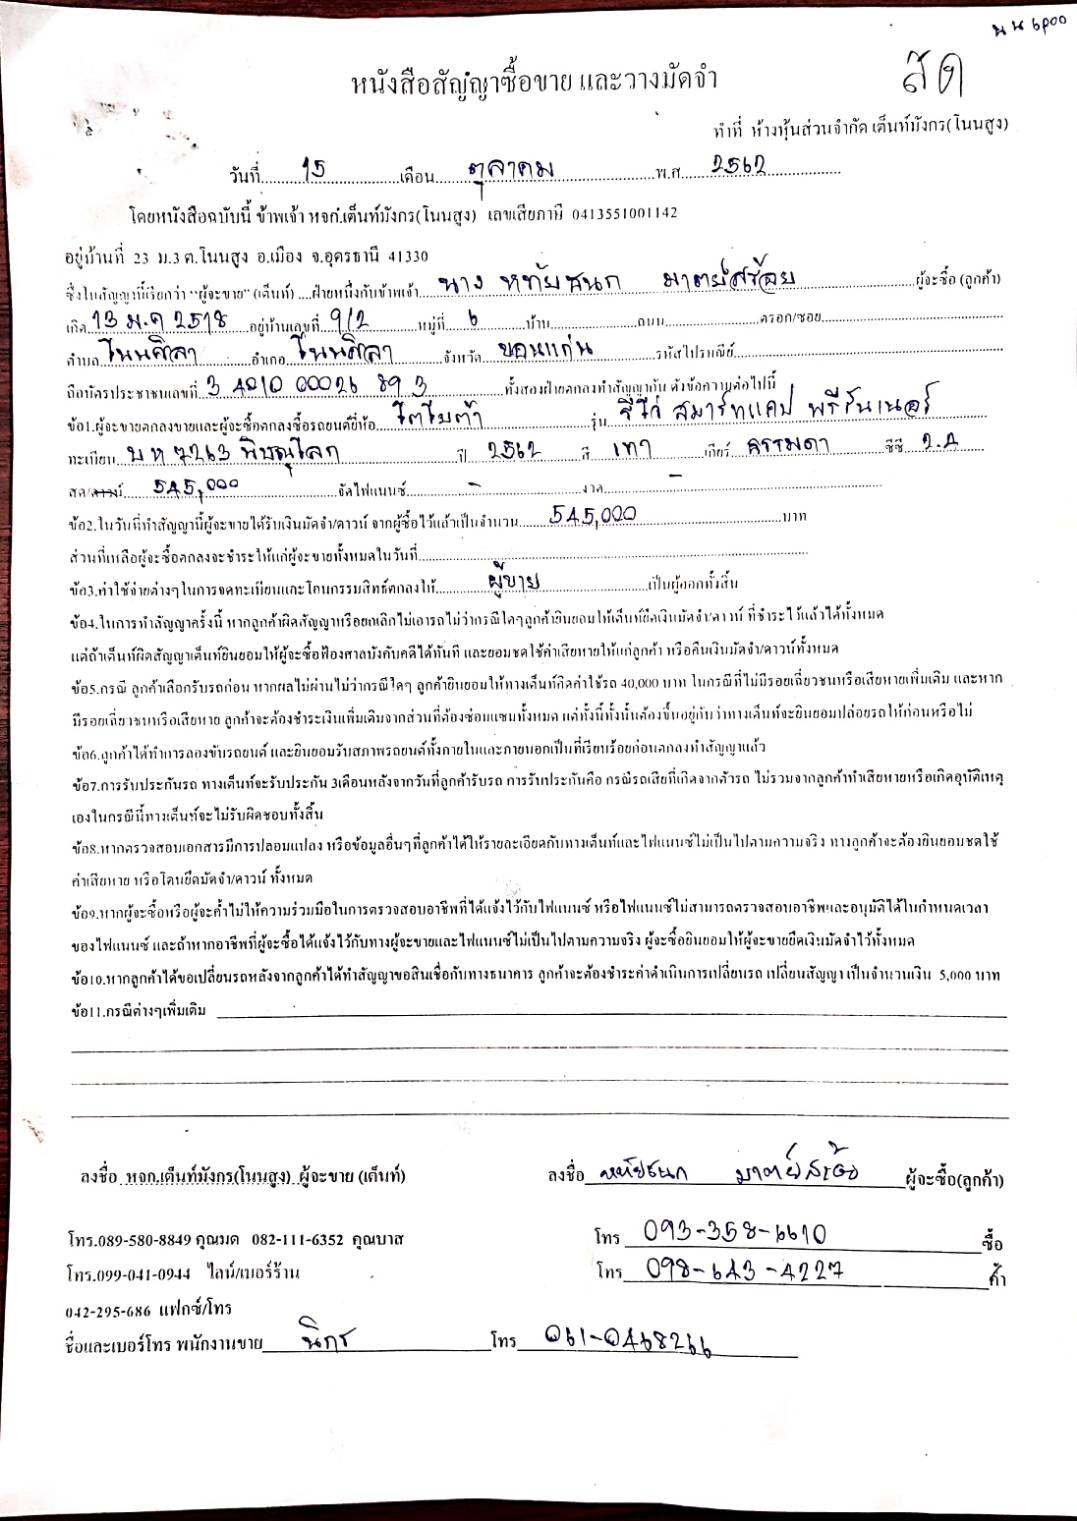 น น ๖๐๐๐
สด
หนังสือสัญญาซื้อขาย และวางมัดจำ
ทำที่ ห้างหุ้นส่วนจำกัด เต็นท์มังกร(โนนสูง)
วันที่ 15 เดือน ตุลาคม พ.ศ. 2562
โดยหนังสือฉบับนี้ ข้าพเจ้า หจก.เต็นท์มังกร(โนนสูง) เลขเสียภาษี 0413551001142
อยู่บ้านที่ 23 ม.3 ต.โนนสูง อ.เมือง จ.อุดรธานี 41330
ซึ่งในสัญญานี้เรียกว่า "ผู้จะขาย" (เต็นท์) ....ฝ่ายหนึ่งกับข้าพเจ้า นาง หทัยชนก มาตย์สร้อย ผู้จะซื้อ (ลูกค้า)
เกิด 13 ม.ค 2518 อยู่บ้านเลขที่ 9/2 หมู่ที่ 6 บ้าน ถนน ตรอก/ซอย
ตำบล โนนศิลา อำเภอ โนนศิลา จังหวัด ขอนแก่น รหัสไปรษณีย์
ถือบัตรประชาชนเลขที่ 3 4010 00026 89 3 ทั้งสองฝ่ายตกลงทำสัญญากัน ดังข้อความต่อไปนี้
ข้อ1.ผู้จะขายตกลงขายและผู้จะซื้อตกลงซื้อรถยนต์ยี่ห้อ โตโยต้า รุ่น รีโว่ สมาร์ทแคป พรีรันเนอร์
ทะเบียน บห 7263 พิษณุโลก ปี 2562 สี เทา เกียร์ ธรรมดา ซีซี 2.4
สด/ดาวน์ 545,000 จัดไฟแนนซ์ - งวด -
ข้อ2.ในวันที่ทำสัญญานี้ผู้จะขายได้รับเงินมัดจำ/ดาวน์ จากผู้ซื้อไว้แล้วเป็นจำนวน 545,000 บาท
ส่วนที่เหลือผู้จะซื้อตกลงจะชำระให้แก่ผู้จะขายทั้งหมดในวันที่
ข้อ3.ค่าใช้จ่ายต่างๆในการจดทะเบียนและโอนกรรมสิทธิ์ตกลงให้ ผู้ขาย เป็นผู้ออกทั้งสิ้น
ข้อ4.ในการทำสัญญาครั้งนี้ หากลูกค้าผิดสัญญาหรือยกเลิกไม่เอารถไม่ว่ากรณีใดๆลูกค้ายินยอมให้เต็นท์ยึดเงินมัดจำ/ดาวน์ ที่ชำระไว้แล้วได้ทั้งหมด
แต่ถ้าเต็นท์ผิดสัญญาเต็นท์ยินยอมให้ผู้จะซื้อฟ้องศาลบังคับคดีได้ทันที และยอมชดใช้ค่าเสียหายให้แก่ลูกค้า หรือคืนเงินมัดจำ/ดาวน์ทั้งหมด
ข้อ5.กรณี ลูกค้าเลือกรับรถก่อน หากผลไม่ผ่านไม่ว่ากรณีใดๆ ลูกค้ายินยอมให้ทางเต็นท์คิดค่าใช้รถ 40,000 บาท ในกรณีที่ไม่มีรอยเฉี่ยวชนหรือเสียหายเพิ่มเติม และหาก
มีรอยเฉี่ยวชนหรือเสียหาย ลูกค้าจะต้องชำระเงินเพิ่มเติมจากส่วนที่ต้องซ่อมแซมทั้งหมด แต่ทั้งนี้ทั้งนั้นต้องขึ้นอยู่กับว่าทางเต็นท์จะยินยอมปล่อยรถให้ก่อนหรือไม่
ข้อ6.ลูกค้าได้ทำการลองขับรถยนต์ และยินยอมรับสภาพรถยนต์ทั้งภายในและภายนอกเป็นที่เรียบร้อยก่อนตกลงทำสัญญาแล้ว
ข้อ7.การรับประกันรถ ทางเต็นท์จะรับประกัน 3เดือนหลังจากวันที่ลูกค้ารับรถ การรับประกันคือ กรณีรถเสียที่เกิดจากตัวรถ ไม่รวมจากลูกค้าทำเสียหายหรือเกิดอุบัติเหตุ
เองในกรณีนี้ทางเต็นท์จะไม่รับผิดชอบทั้งสิ้น
ข้อ8.หากตรวจสอบเอกสารมีการปลอมแปลง หรือข้อมูลอื่นๆที่ลูกค้าได้ให้รายละเอียดกับทางเต็นท์และไฟแนนซ์ไม่เป็นไปตามความจริง ทางลูกค้าจะต้องยินยอมชดใช้
ค่าเสียหาย หรือโดนยึดมัดจำ/ดาวน์ ทั้งหมด
ข้อ9.หากผู้จะซื้อหรือผู้จะค้ำไม่ให้ความร่วมมือในการตรวจสอบอาชีพที่ได้แจ้งไว้กับไฟแนนซ์ หรือไฟแนนซ์ไม่สามารถตรวจสอบอาชีพและอนุมัติได้ในกำหนดเวลา
ของไฟแนนซ์ และถ้าหากอาชีพที่ผู้จะซื้อได้แจ้งไว้กับทางผู้จะขายและไฟแนนซ์ไม่เป็นไปตามความจริง ผู้จะซื้อยินยอมให้ผู้จะขายยึดเงินมัดจำไว้ทั้งหมด
ข้อ10.หากลูกค้าได้ขอเปลี่ยนรถหลังจากลูกค้าได้ทำสัญญาขอสินเชื่อกับทางธนาคาร ลูกค้าจะต้องชำระค่าดำเนินการเปลี่ยนรถ เปลี่ยนสัญญา เป็นจำนวนเงิน 5,000 บาท
ข้อ11.กรณีต่างๆเพิ่มเติม
ลงชื่อ หจก.เต็นท์มังกร(โนนสูง) ผู้จะขาย (เต็นท์) ลงชื่อ หทัยชนก มาตย์สร้อย ผู้จะซื้อ(ลูกค้า)
โทร.089-580-8849 คุณมด 082-111-6352 คุณบาส โทร 093-358-6610 ซื้อ
โทร.099-041-0944 ไลน์/เบอร์ร้าน โทร 098-643-4227 ค้ำ
042-295-686 แฟกซ์/โทร
ชื่อและเบอร์โทร พนักงานขาย นิกร โทร 061-0468266